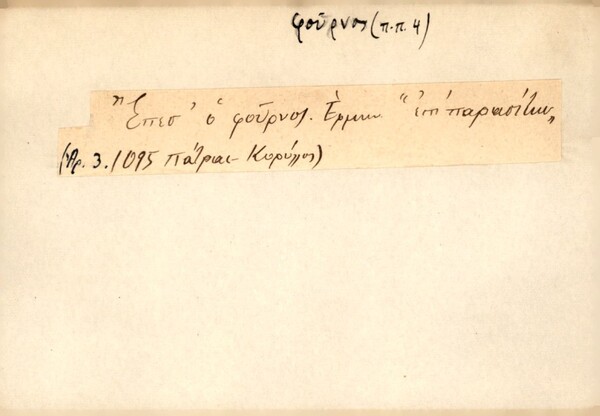 φοῦρνος (π.π. 4)
"Ἔπεσ' ὁ φοῦρνος. Ἑρμην. "ἐπὶ παρασίτων"
(Ἀρ. 3. 1095 Πάτραι - Κορύλλος)